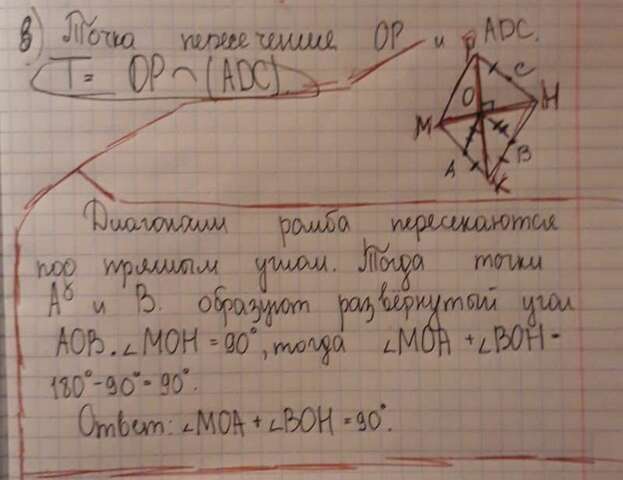 в) Точка пересечение OP и ADC.
T = OP ∩ (ADC)
P
C
O
H
M
A
B
K
Диагонали ромба пересекаются
под прямым углом. Тогда точки
A и B. образуют развернутый угол
AOB. ∠MOH = 90°, тогда ∠MOA + ∠BOH =
180° - 90° = 90°.
Ответ: ∠MOA + ∠BOH = 90°.